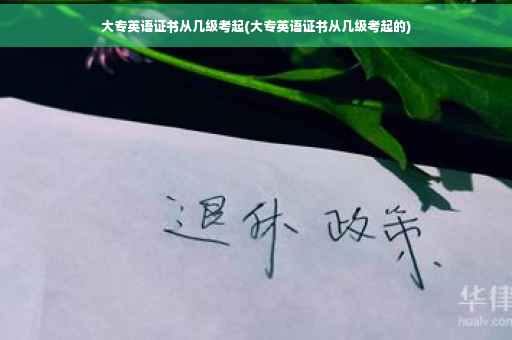 大专英语证书从几级考起(大专英语证书从几级考起的)
退休 政策
华律
hualv.com